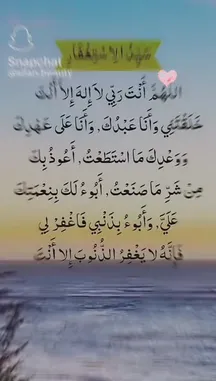 Snapchat
سيد الاستغفار
اللَّهُمَّ أَنْتَ رَبِّي لَا إِلَهَ إِلَّا أَنْتَ
خَلَقْتَنِي وَأَنَا عَبْدُكَ, وَأَنَا عَلَى عَهْدِكَ
وَوَعْدِكَ مَا اسْتَطَعْتُ, أَعُوذُ بِكَ
مِنْ شَرِّ مَا صَنَعْتُ, أَبُوءُ لَكَ بِنِعْمَتِكَ
عَلَيَّ, وَأَبُوءُ بِذَنْبِي فَاغْفِرْ لِي
فَإِنَّهُ لَا يَغْفِرُ الذُّنُوبَ إِلَّا أَنْتَ